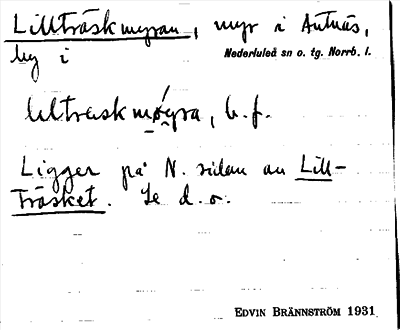 Lillträskmyran, myr i Antnäs,
by i Nederluleå sn o. tg. Norrb. l.
lilträskmøyra, b. f.
Ligger på N. sidan av Lill-
Träsket. Se d. o.
EDVIN BRÄNNSTRÖM 1931